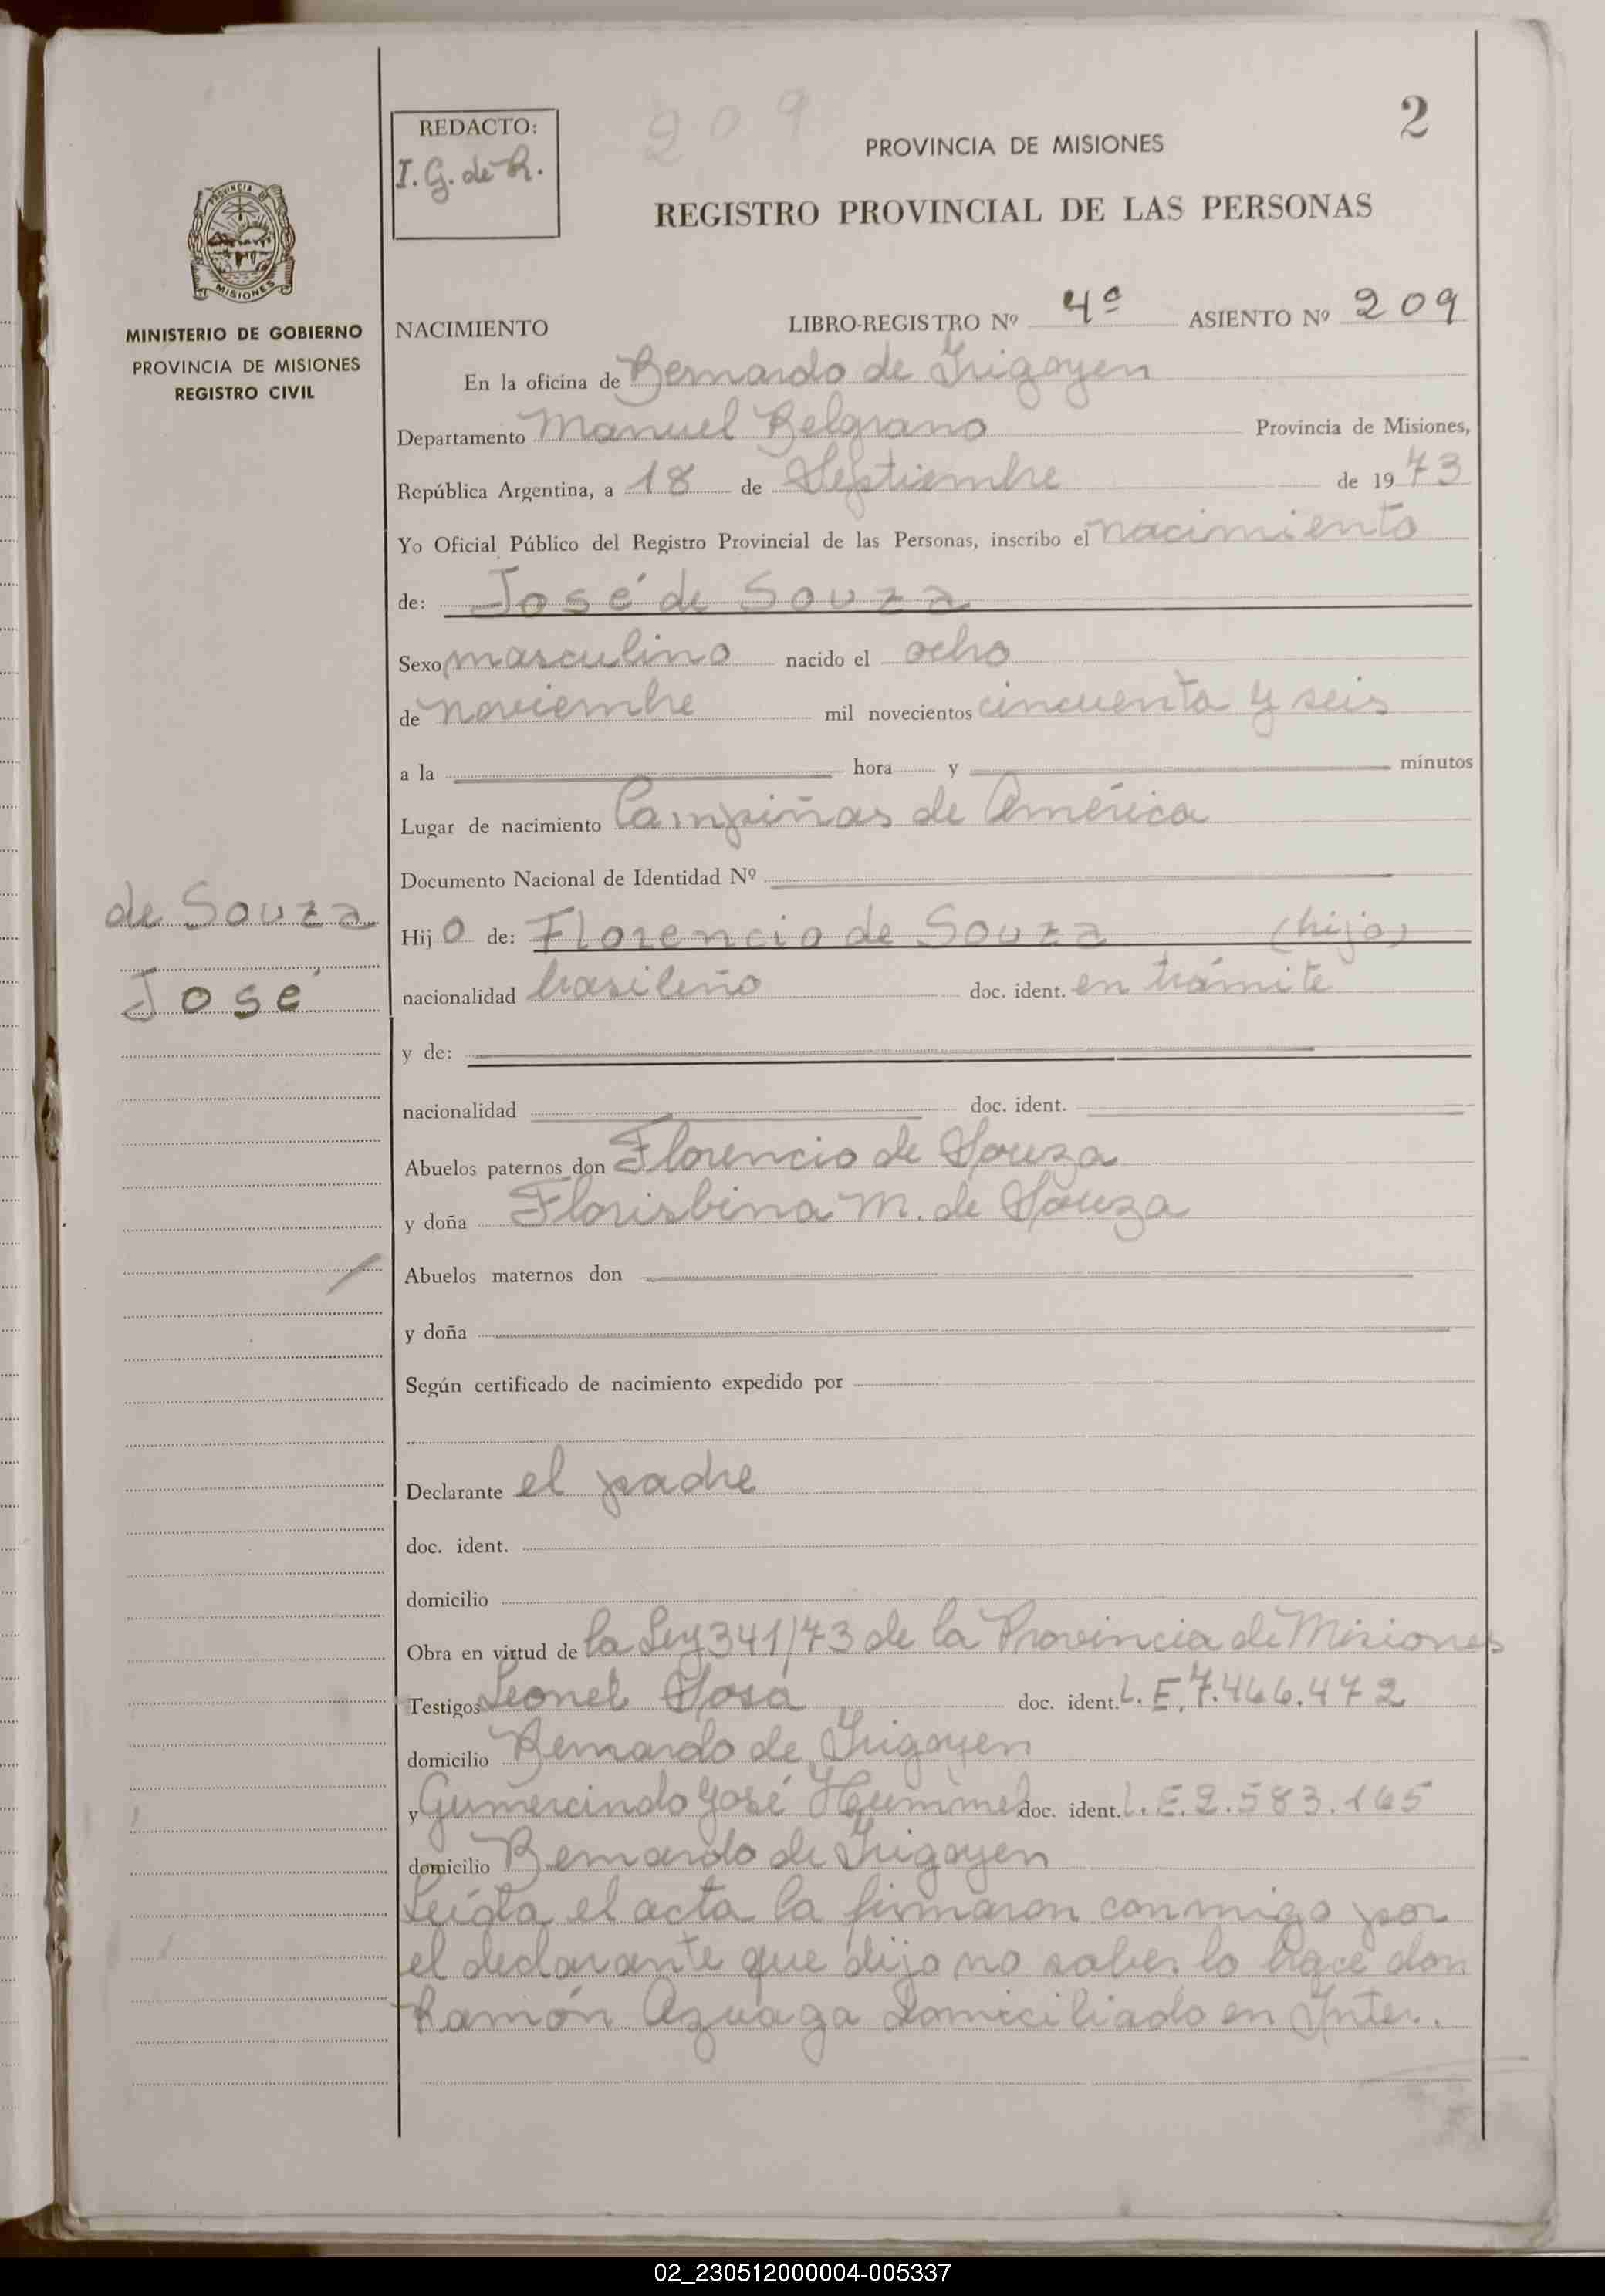 2
209
REDACTO:
I. G. de R.
PROVINCIA DE MISIONES
REGISTRO PROVINCIAL DE LAS PERSONAS
PROVINCIA DE
MISIONES
MINISTERIO DE GOBIERNO
PROVINCIA DE MISIONES
REGISTRO CIVIL
NACIMIENTO LIBRO-REGISTRO Nº 4º ASIENTO Nº 209
En la oficina de Bernardo de Irigoyen
Departamento Manuel Belgrano Provincia de Misiones,
República Argentina, a 18 de Septiembre de 1973
Yo Oficial Público del Registro Provincial de las Personas, inscribo el nacimiento
de: José de Souza
Sexo masculino nacido el ocho
de noviembre mil novecientos cincuenta y seis
a la hora y minutos
Lugar de nacimiento Campiñas de América
Documento Nacional de Identidad Nº
de Souza
José
Hijo de: Florencio de Souza (hijo)
nacionalidad brasileño doc. ident. en trámite
y de:
nacionalidad doc. ident.
Abuelos paternos don Florencio de Souza
y doña Florisbina M. de Souza
Abuelos maternos don
y doña
Según certificado de nacimiento expedido por
Declarante el padre
doc. ident.
domicilio
Obra en virtud de la Ley 341/73 de la Provincia de Misiones
Testigos Leonel Sosa doc. ident. L. E. 7.466.472
domicilio Bernardo de Irigoyen
y Gumercindo José Hummel doc. ident. L. E. 2.583.165
domicilio Bernardo de Irigoyen
Leída el acta la firmaron conmigo por
el declarante que dijo no saber lo hace don
Ramón Azuaga domiciliado en Inter.
02_230512000004-005337